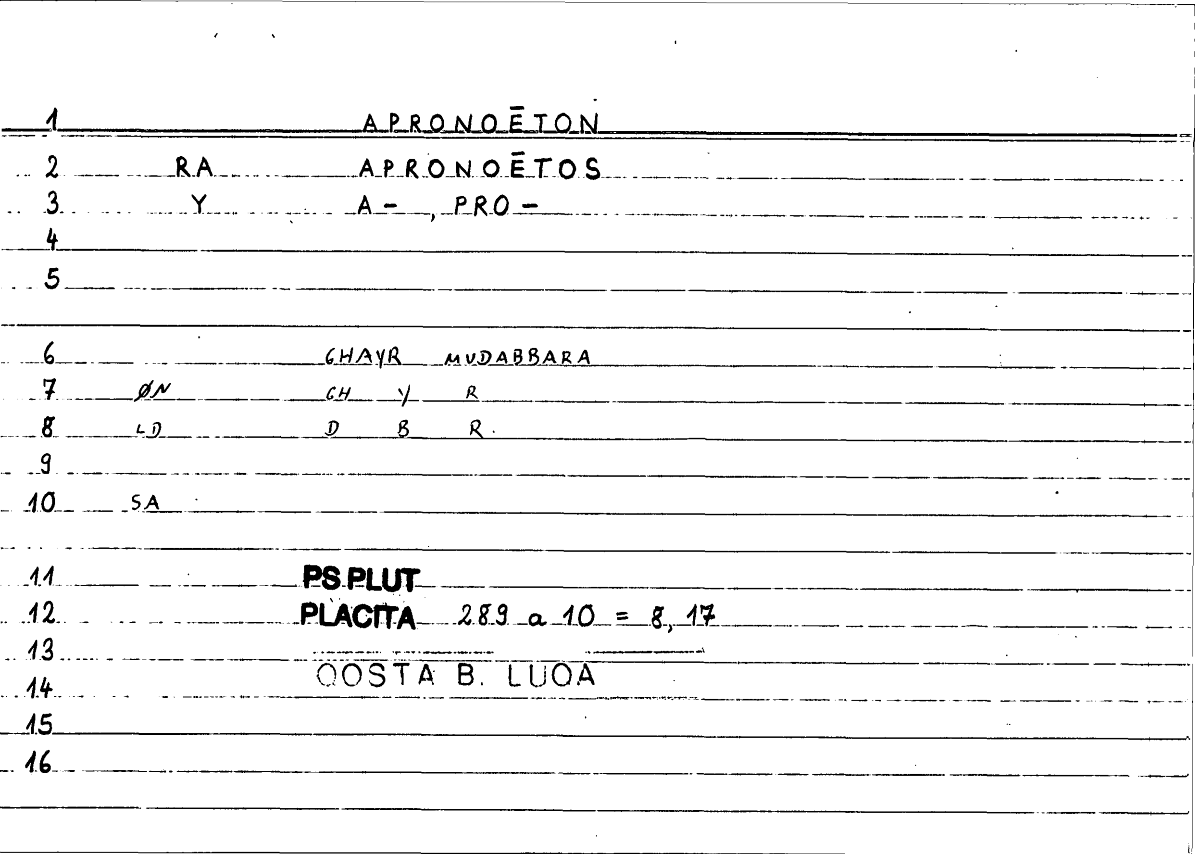 1 APRONOĒTON
2 RA APRONOĒTOS
3 Y A-, PRO-
4
5
6 GHAYR MUDABBARA
7 ØN GH Y R
8 LD D B R.
9
10 SA
11 PS.PLUT
12 PLACITA 289 a 10 = 8, 17
13
14 QOSTA B. LUQA
15
16